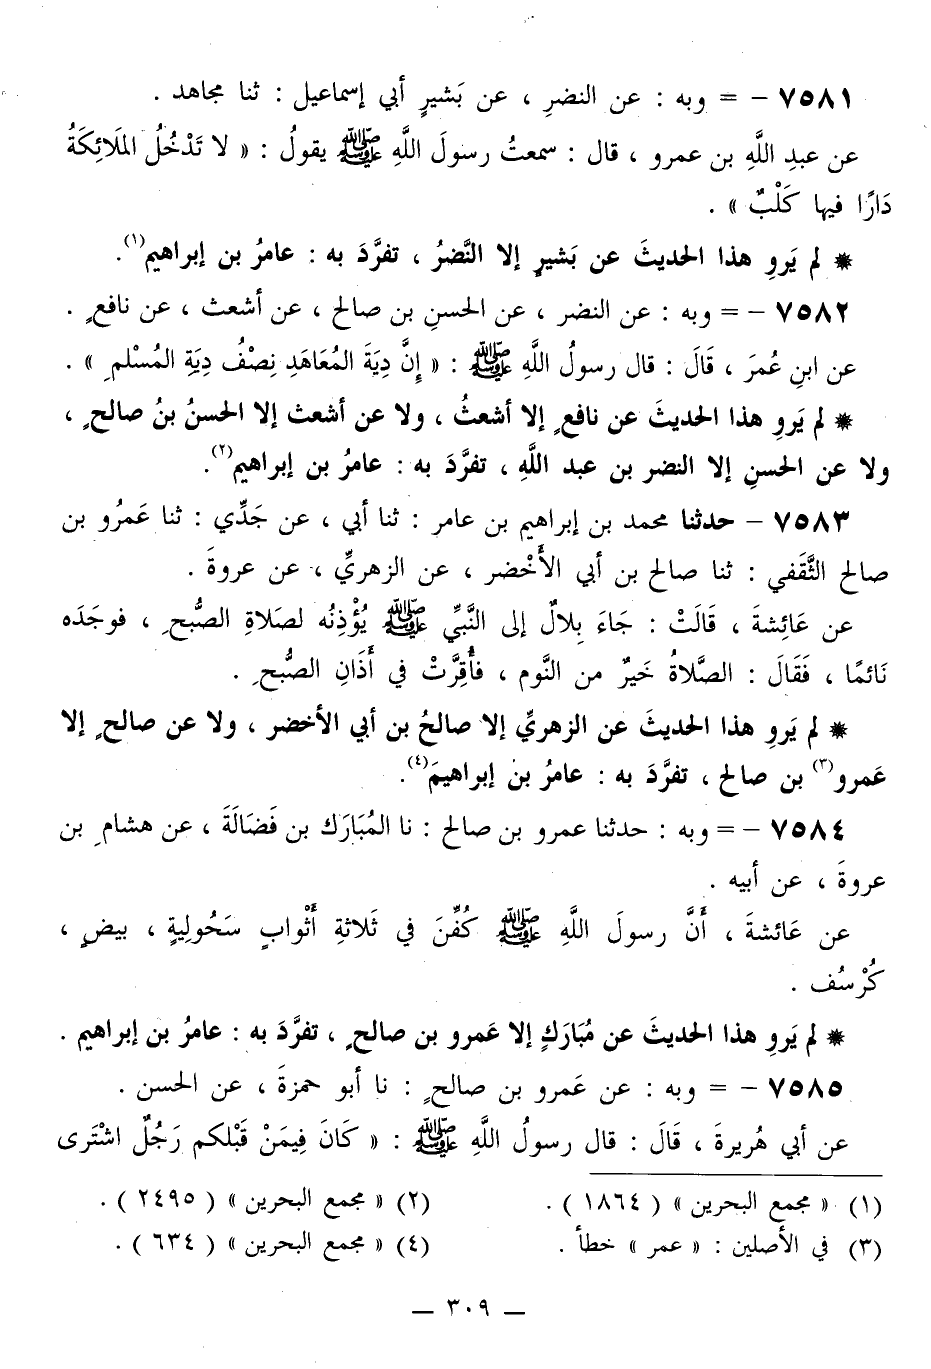 ٧٥٨١ - = وبه : عن النضرِ ، عن بَشيرٍ أبي إسماعيل : ثنا مجاهد .
عن عبدِ اللَّهِ بن عمرو ، قال : سمعتُ رسولَ اللَّهِ ﷺ يقولُ : « لا تَدْخُلُ المَلَائِكَةُ
دَارًا فيها كَلْبٌ » .
* لم يَروِ هذا الحديثَ عن بَشيرٍ إلا النَّضرُ ، تفرَّدَ به : عامرُ بن إبراهيم(١).
٧٥٨٢ - = وبه : عن النضر ، عن الحسنِ بن صالح ، عن أشعث ، عن نافعٍ .
عن ابنِ عُمرَ ، قَالَ : قال رسولُ اللَّهِ ﷺ : « إِنَّ دِيَةَ المُعَاهَدِ نِصْفُ دِيَةِ المُسْلمِ » .
* لم يَروِ هذا الحديثَ عن نافعٍ إلا أشعثُ ، ولا عن أشعث إلا الحسنُ بنُ صالحٍ ،
ولا عن الحسنِ إلا النضر بن عبد اللَّهِ ، تفرَّدَ به : عامرُ بن إبراهيم(٢).
٧٥٨٣ - حدثنا محمد بن إبراهيم بن عامر : ثنا أبي ، عن جَدِّي : ثنا عَمرُو بن
صالح الثَّقَفي : ثنا صالح بن أبي الأَخْضر ، عن الزهريِّ ، عن عروةَ .
عن عَائِشةَ ، قَالَتْ : جَاءَ بِلالٌ إلى النَّبيِّ ﷺ يُؤْذِنُه لصَلاةِ الصُّبحِ ، فوجَدَه
نَائمًا ، فَقَالَ : الصَّلاةُ خَيرٌ من النَّوم ، فأُقِرَّتْ في أَذَانِ الصُّبحِ .
* لم يَروِ هذا الحديثَ عن الزهريِّ إلا صالحُ بن أبي الأخضر ، ولا عن صالحٍ إلا
عَمرو(٣) بن صالح ، تفرَّدَ به : عامرُ بنُ إبراهيمَ(٤).
٧٥٨٤ - = وبه : حدثنا عمرو بن صالح : نا المُبَارَك بن فَضَالَةَ ، عن هشامِ بن
عروةَ ، عن أبيه .
عن عَائشةَ ، أَنَّ رسولَ اللَّهِ ﷺ كُفِّنَ في ثَلاثةِ أَثْوابٍ سَحُولِيةٍ ، بيضٍ ،
كُرْسُف .
* لم يَروِ هذا الحديثَ عن مُبَارَكٍ إلا عَمرو بن صالحٍ ، تفرَّدَ به : عامرُ بن إبراهيم .
٧٥٨٥ - = وبه : عن عَمرو بن صالحٍ : نا أبو حمزةَ ، عن الحسن .
عن أبي هُريرةَ ، قَالَ : قال رسولُ اللَّهِ ﷺ : « كَانَ فِيمَنْ قَبْلكم رَجُلٌ اشْتَرى
(١) « مجمع البحرين » ( ١٨٦٤ ) .
(٢) « مجمع البحرين » ( ٢٤٩٥ ) .
(٣) في الأصلين : « عمر » خطأ .
(٤) « مجمع البحرين » ( ٦٣٤ ) .
— ٣٠٩ —